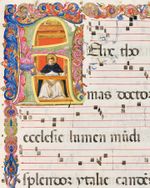 Felix tho
mas doctor
ecclesie lumen mūdi
splendor ytalie candēs